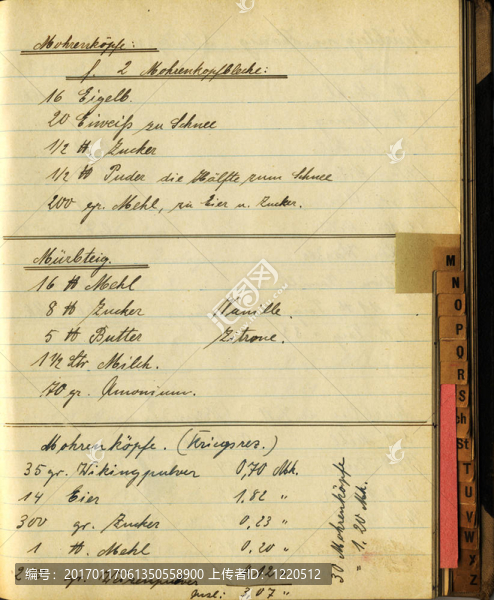 Mohrenköpfe:
f. 2 Mohrenkopfbleche:
16 Eigelb.
20 Eiweiß zu Schnee
1/2 ℔ Zucker
1/2 ℔ Puder die Hälfte zum Schnee
200 gr. Mehl, zu Eier u. Zucker.
Mürbteig.
16 ℔ Mehl
8 ℔ Zucker Vanille.
5 ℔ Butter Zitrone.
1 1/2 Ltr. Milch.
70 gr. Amonium.
Mohrenköpfe. (Kriegsrez.)
35 gr. Wikingpulver 0,70 Mk.
14 Eier 1,82 "
300 gr. Zucker 0,23 "
1 ℔. Mehl 0,20 "
0,12
3,07 "
30 Mohrenköpfe
" 1,20 Mk.
M
N
O
P
Q
R
S
ch
St
T
U
V
W
Y
Z
编号:20170117061350558900 上传者ID:1220512